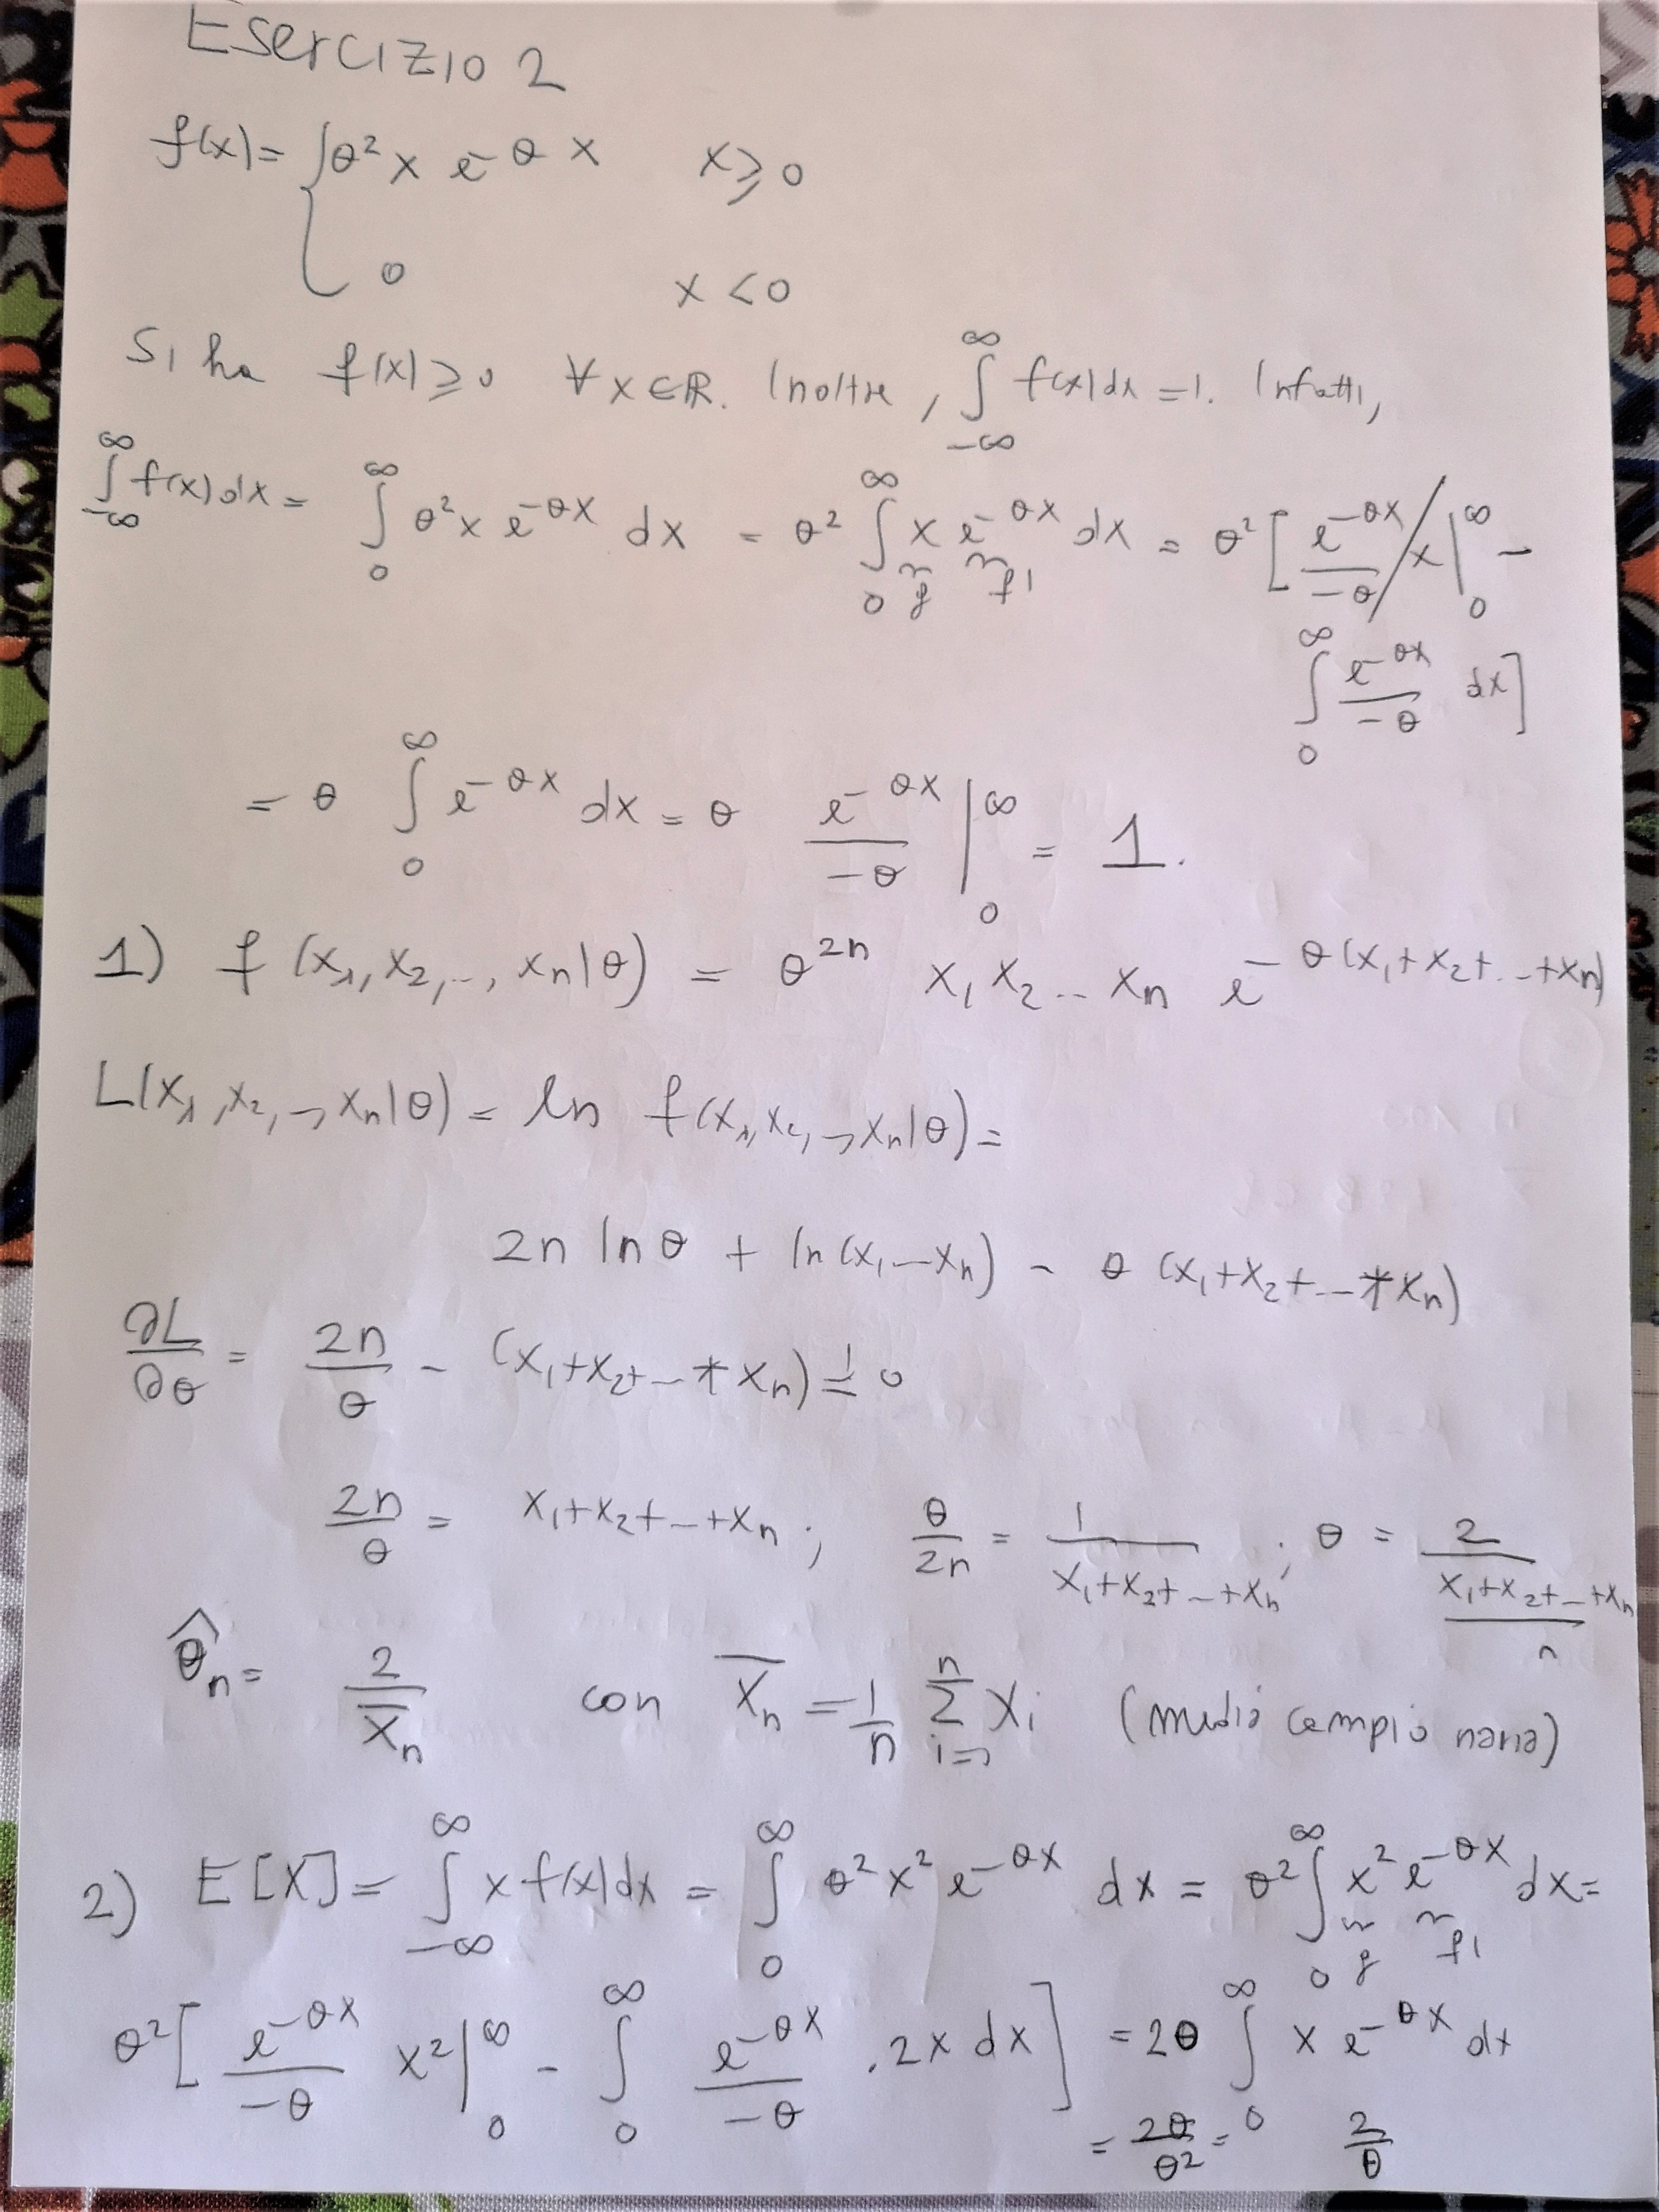 Esercizio 2
f(x) = { θ² x e^{-θx}    x ≥ 0
0    x < 0
Si ha f(x) ≥ 0 ∀ x ∈ ℝ. Inoltre, ∫_{-∞}^{∞} f(x) dx = 1. Infatti,
∫_{-∞}^{∞} f(x) dx = ∫_0^∞ θ² x e^{-θx} dx = θ² ∫_0^∞ x e^{-θx} dx = θ² [ e^{-θx}/(-θ) x |_0^∞ -
g f'
∫_0^∞ e^{-θx}/(-θ) dx ]
= θ ∫_0^∞ e^{-θx} dx = θ e^{-θx}/(-θ) |_0^∞ = 1.
1) f(x₁, x₂, .., xₙ|θ) = θ^{2n} x₁ x₂ .. xₙ e^{-θ(x₁+x₂+..+xₙ)}
L(x₁, x₂, .., xₙ|θ) = ln f(x₁, x₂, .., xₙ|θ) =
2n ln θ + ln(x₁ .. xₙ) - θ (x₁+x₂+..+xₙ)
∂L/∂θ = 2n/θ - (x₁+x₂+..+xₙ) =! 0
2n/θ = x₁+x₂+..+xₙ ; θ/2n = 1/(x₁+x₂+..+xₙ) ; θ = 2/((x₁+x₂+..+xₙ)/n)
θ̂ₙ = 2/X̄ₙ con X̄ₙ = 1/n Σ_{i=1}^n Xᵢ (media campionaria)
2) E[X] = ∫_{-∞}^{∞} x f(x) dx = ∫_0^∞ θ² x² e^{-θx} dx = θ² ∫_0^∞ x² e^{-θx} dx =
g f'
θ² [ e^{-θx}/(-θ) x² |_0^∞ - ∫_0^∞ e^{-θx}/(-θ) . 2x dx ] = 2θ ∫_0^∞ x e^{-θx} dx
= 2θ/θ² = 2/θ